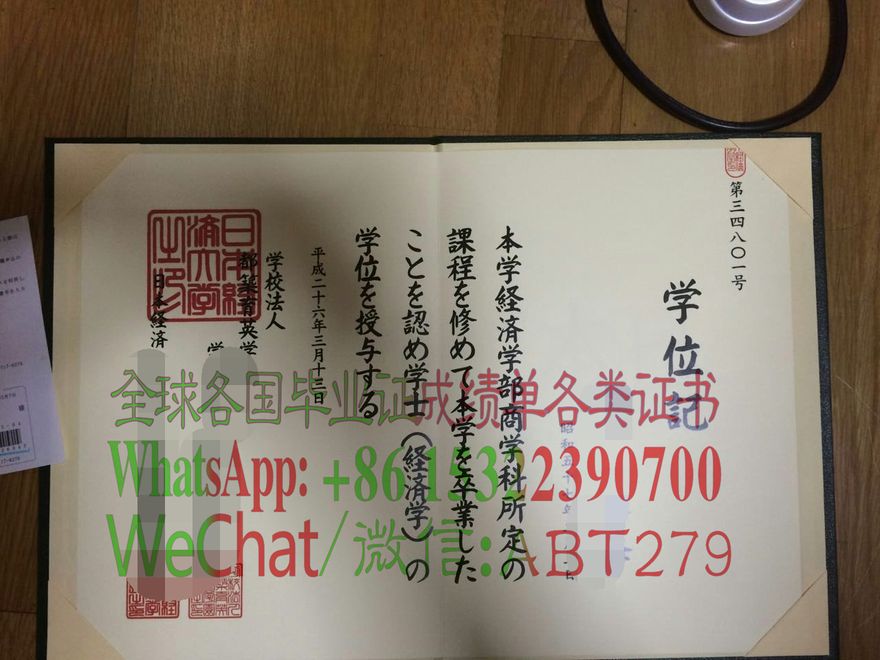 第三四八〇一号
学位記
本学経済学部商学科所定の
課程を修めて本学を卒業した
ことを認め学士（経済学）の
学位を授与する
平成二十六年三月十三日
学校法人
都築育英学
日本経済
学
日本経
済大学
之印
昭和五十七年
全球各国毕业证成绩单各类证书
WhatsApp: +86 15322390700
WeChat/微信:ABT279